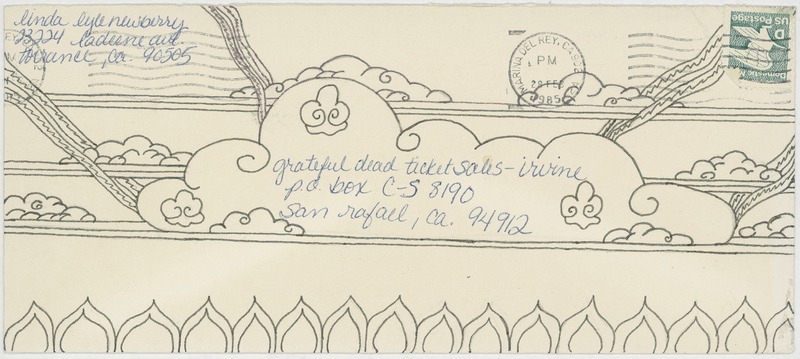 linda lyle newberry
23224 ladeene ave.
torrance, ca. 90505
MARINA DEL REY, CA 902
PM
28 FEB
1985
D
US Postage
Domestic Mail
grateful dead ticket sales - irvine
p.o. box C-S 8190
san rafael, ca. 94912